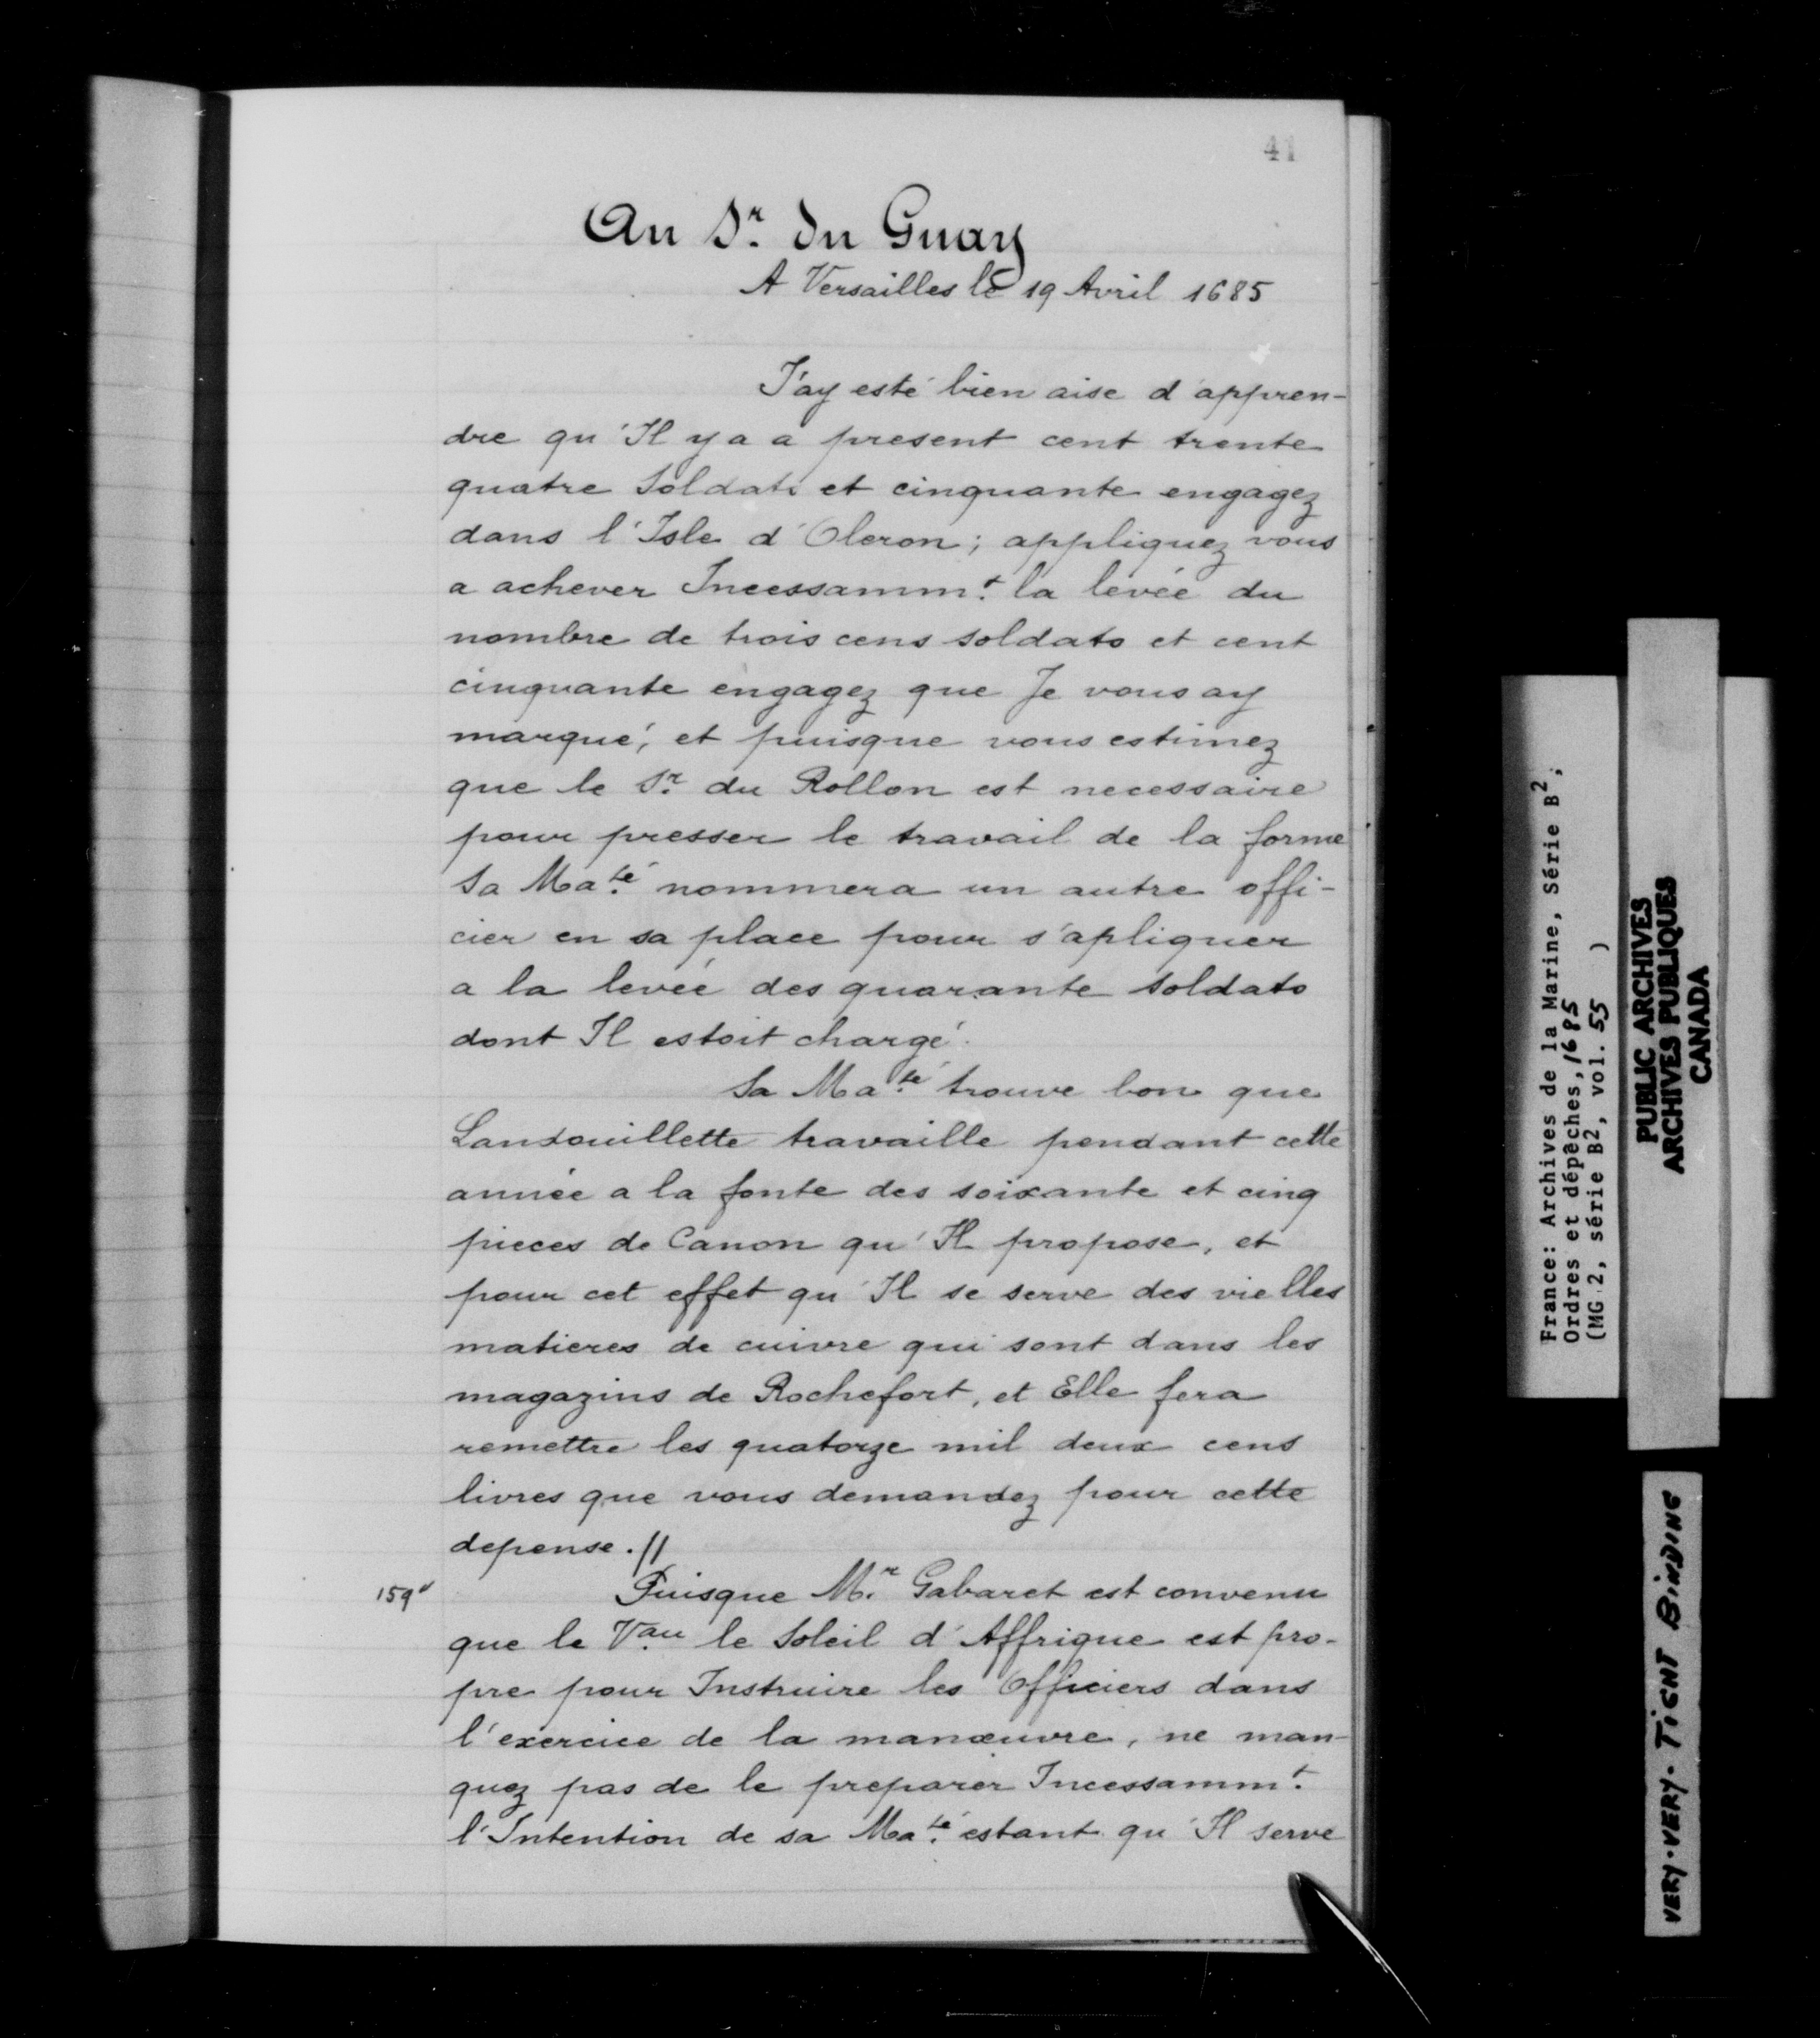 41
Au Sr. du Guay
A Versailles le 19 Avril 1685
J'ay esté bien aise d'appren-
dre qu'Il y a a present cent trente
quatre Soldats et cinquante engagez
dans l'Isle d'Oleron; appliquez vous
a achever Incessammt. la levée du
nombre de trois cens soldats et cent
cinquante engagez que Je vous ay
marqué, et puisque vous estimez
que le Sr. du Rollon est necessaire
pour presser le travail de la forme
Sa Maté. nommera un autre offi-
cier en sa place pour s'apliquer
a la levée des quarante soldats
dont Il estoit chargé.
Sa Maté. trouve bon que
Landouillette travaille pendant cette
année a la fonte des soixante et cinq
pieces de Canon qu'Il propose, et
pour cet effet qu'Il se serve des vielles
matieres de cuivre qui sont dans les
magazins de Rochefort, et Elle fera
remettre les quatorze mil deux cens
livres que vous demandez pour cette
depense.//
159v
Puisque Mr. Gabaret est convenu
que le Vau. le Soleil d'Affrique est pro-
pre pour Instruire les Officiers dans
l'exercice de la manœuvre, ne man-
quez pas de le preparer Incessammt.
l'Intention de sa Maté. estant qu'Il serve
France: Archives de la Marine, Série B2,
Ordres et dépêches, 1685
(MG 2, série B2, vol. 55 )
PUBLIC ARCHIVES
ARCHIVES PUBLIQUES
CANADA
VERY-VERY-TIGHT BINDING